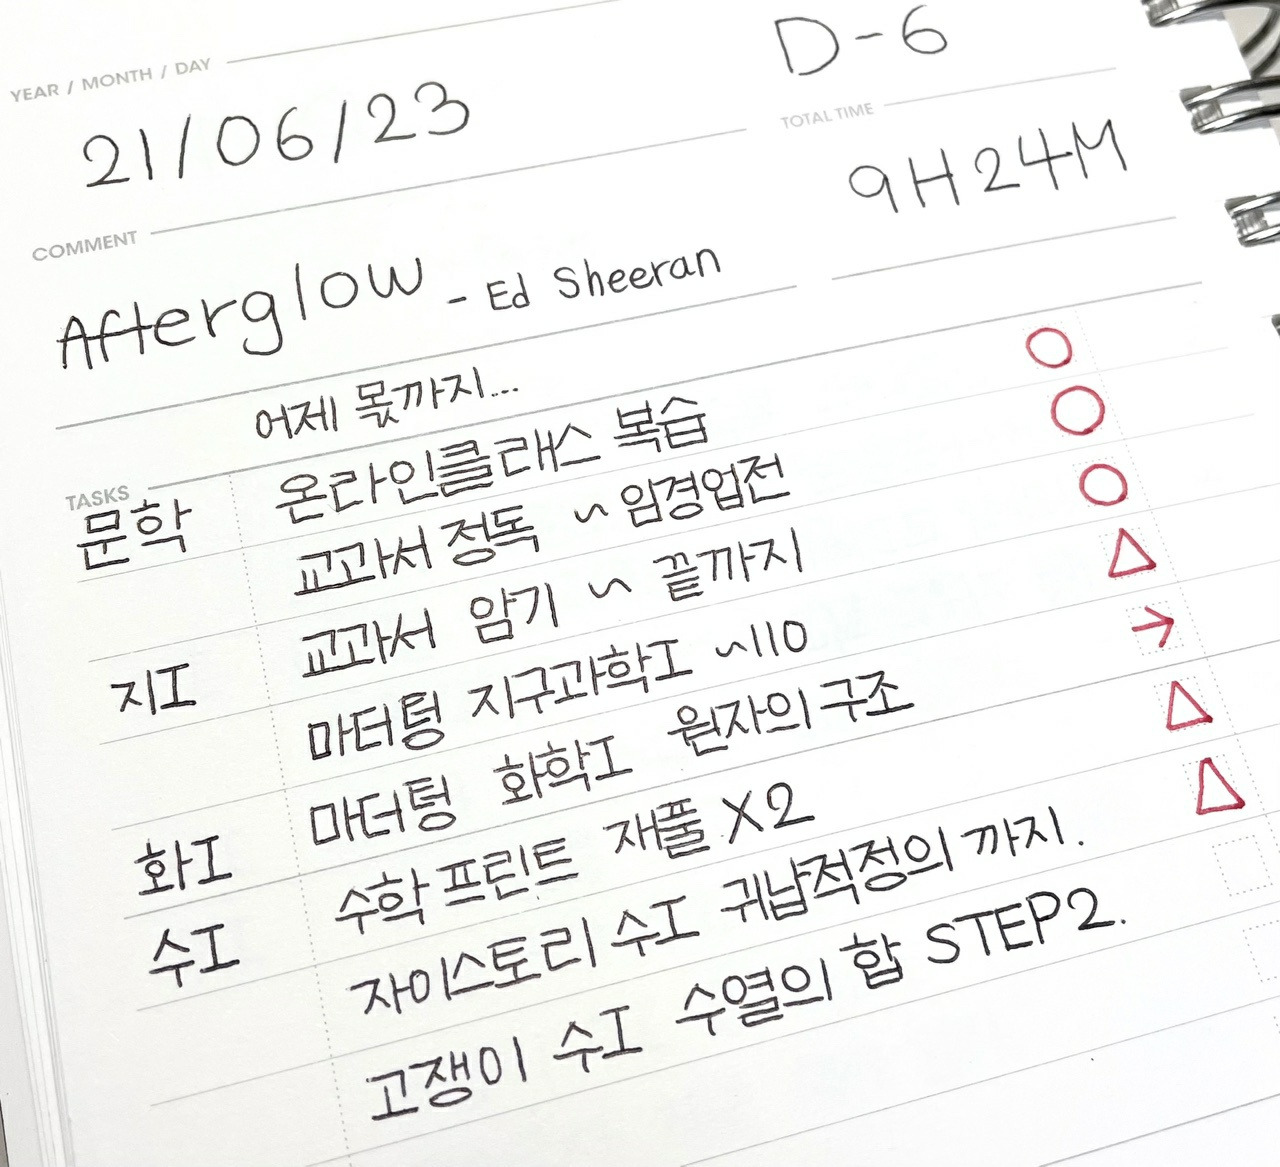 YEAR / MONTH / DAY
D-6
21/06/23
TOTAL TIME
9H24M
COMMENT
Afterglow - Ed Sheeran
어제 몫까지...
TASKS
문학 온라인클래스 복습
교과서 정독 ~ 임경업전
교과서 암기 ~ 끝까지
지I 마더텅 지구과학I ~110
마더텅 화학I 원자의 구조
화I 수학프린트 재풀 X2
수I 자이스토리 수I 귀납적정의 까지.
고쟁이 수I 수열의 합 STEP2.